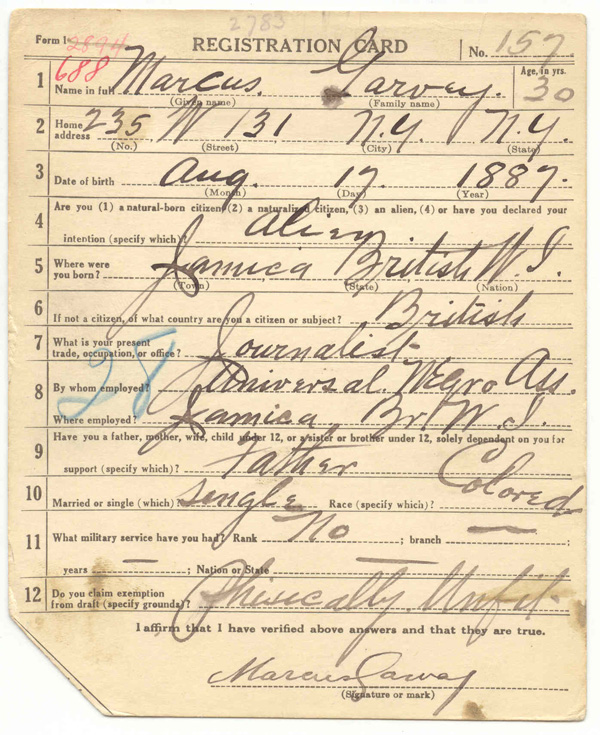 2783
Form 1 2894 REGISTRATION CARD No. 157
688
1 Name in full Marcus. Garvey. Age, in yrs. 30
(Given name) (Family name)
2 Home address 235 W 131 N.Y. N.Y.
(No.) (Street) (City) (State)
3 Date of birth Aug. 17. 1887.
(Month) (Day) (Year)
4 Are you (1) a natural-born citizen, (2) a naturalized citizen, (3) an alien, (4) or have you declared your
intention (specify which)? Alien
5 Where were you born? Jamica British W. I.
(Town) (State) (Nation)
6 If not a citizen, of what country are you a citizen or subject? British
7 What is your present trade, occupation, or office? Journalist
28
8 By whom employed? Universal. Negro Ass.
Where employed? Jamica, Br. W. I.
9 Have you a father, mother, wife, child under 12, or a sister or brother under 12, solely dependent on you for
support (specify which)? Father
10 Married or single (which)? Single Race (specify which)? Colored
11 What military service have you had? Rank No ; branch — ;
years — ; Nation or State —
12 Do you claim exemption from draft (specify grounds)? Phisically Unfit
I affirm that I have verified above answers and that they are true.
Marcus Garvey
(Signature or mark)